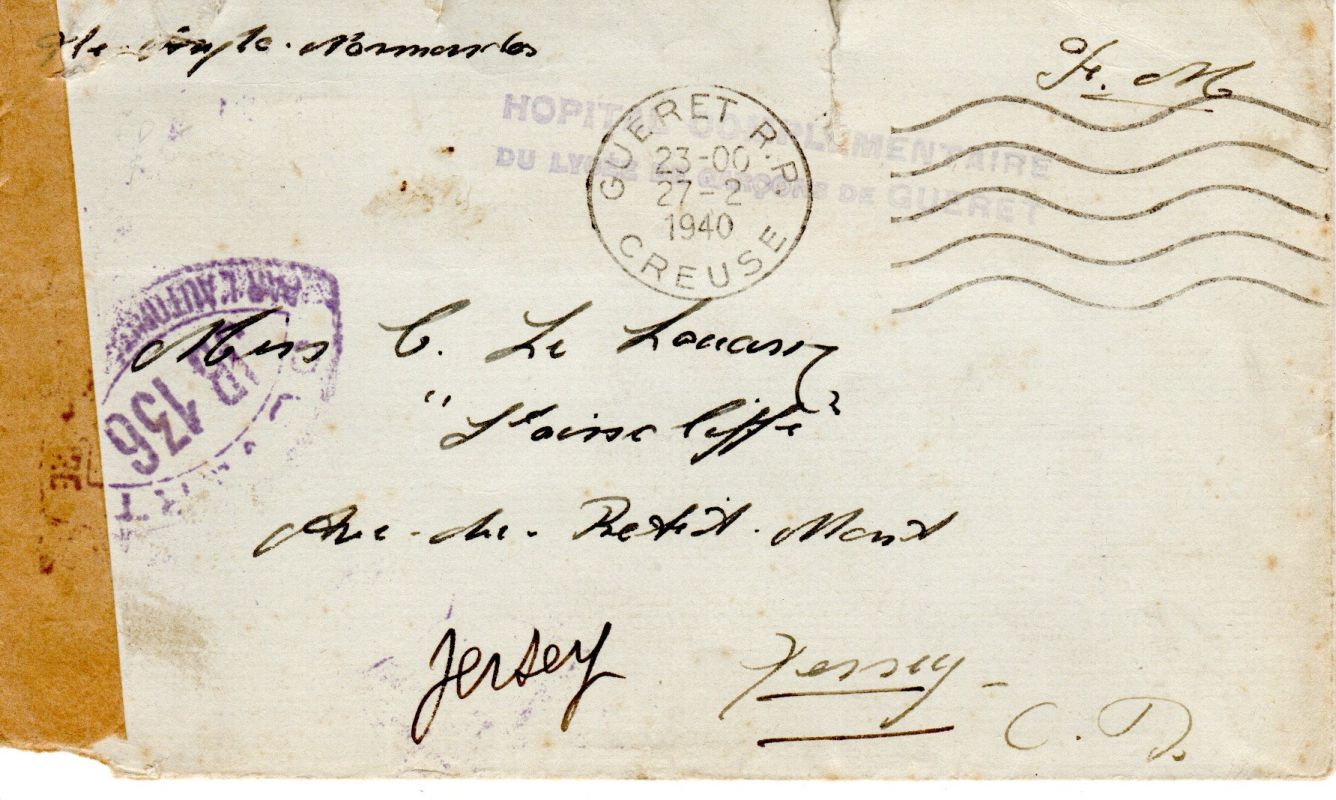 Iles Anglo-Normandes
F. M
HOPITAL COMPLÉMENTAIRE
DU LYCÉE DE GARÇONS DE GUERET
GUERET R.P.
23-00
27-2
1940
CREUSE
PAR L'AUTORITÉ
136
Miss C. Le
"
Ave-du-Petit-Mont
Jersey Jersey -
C.